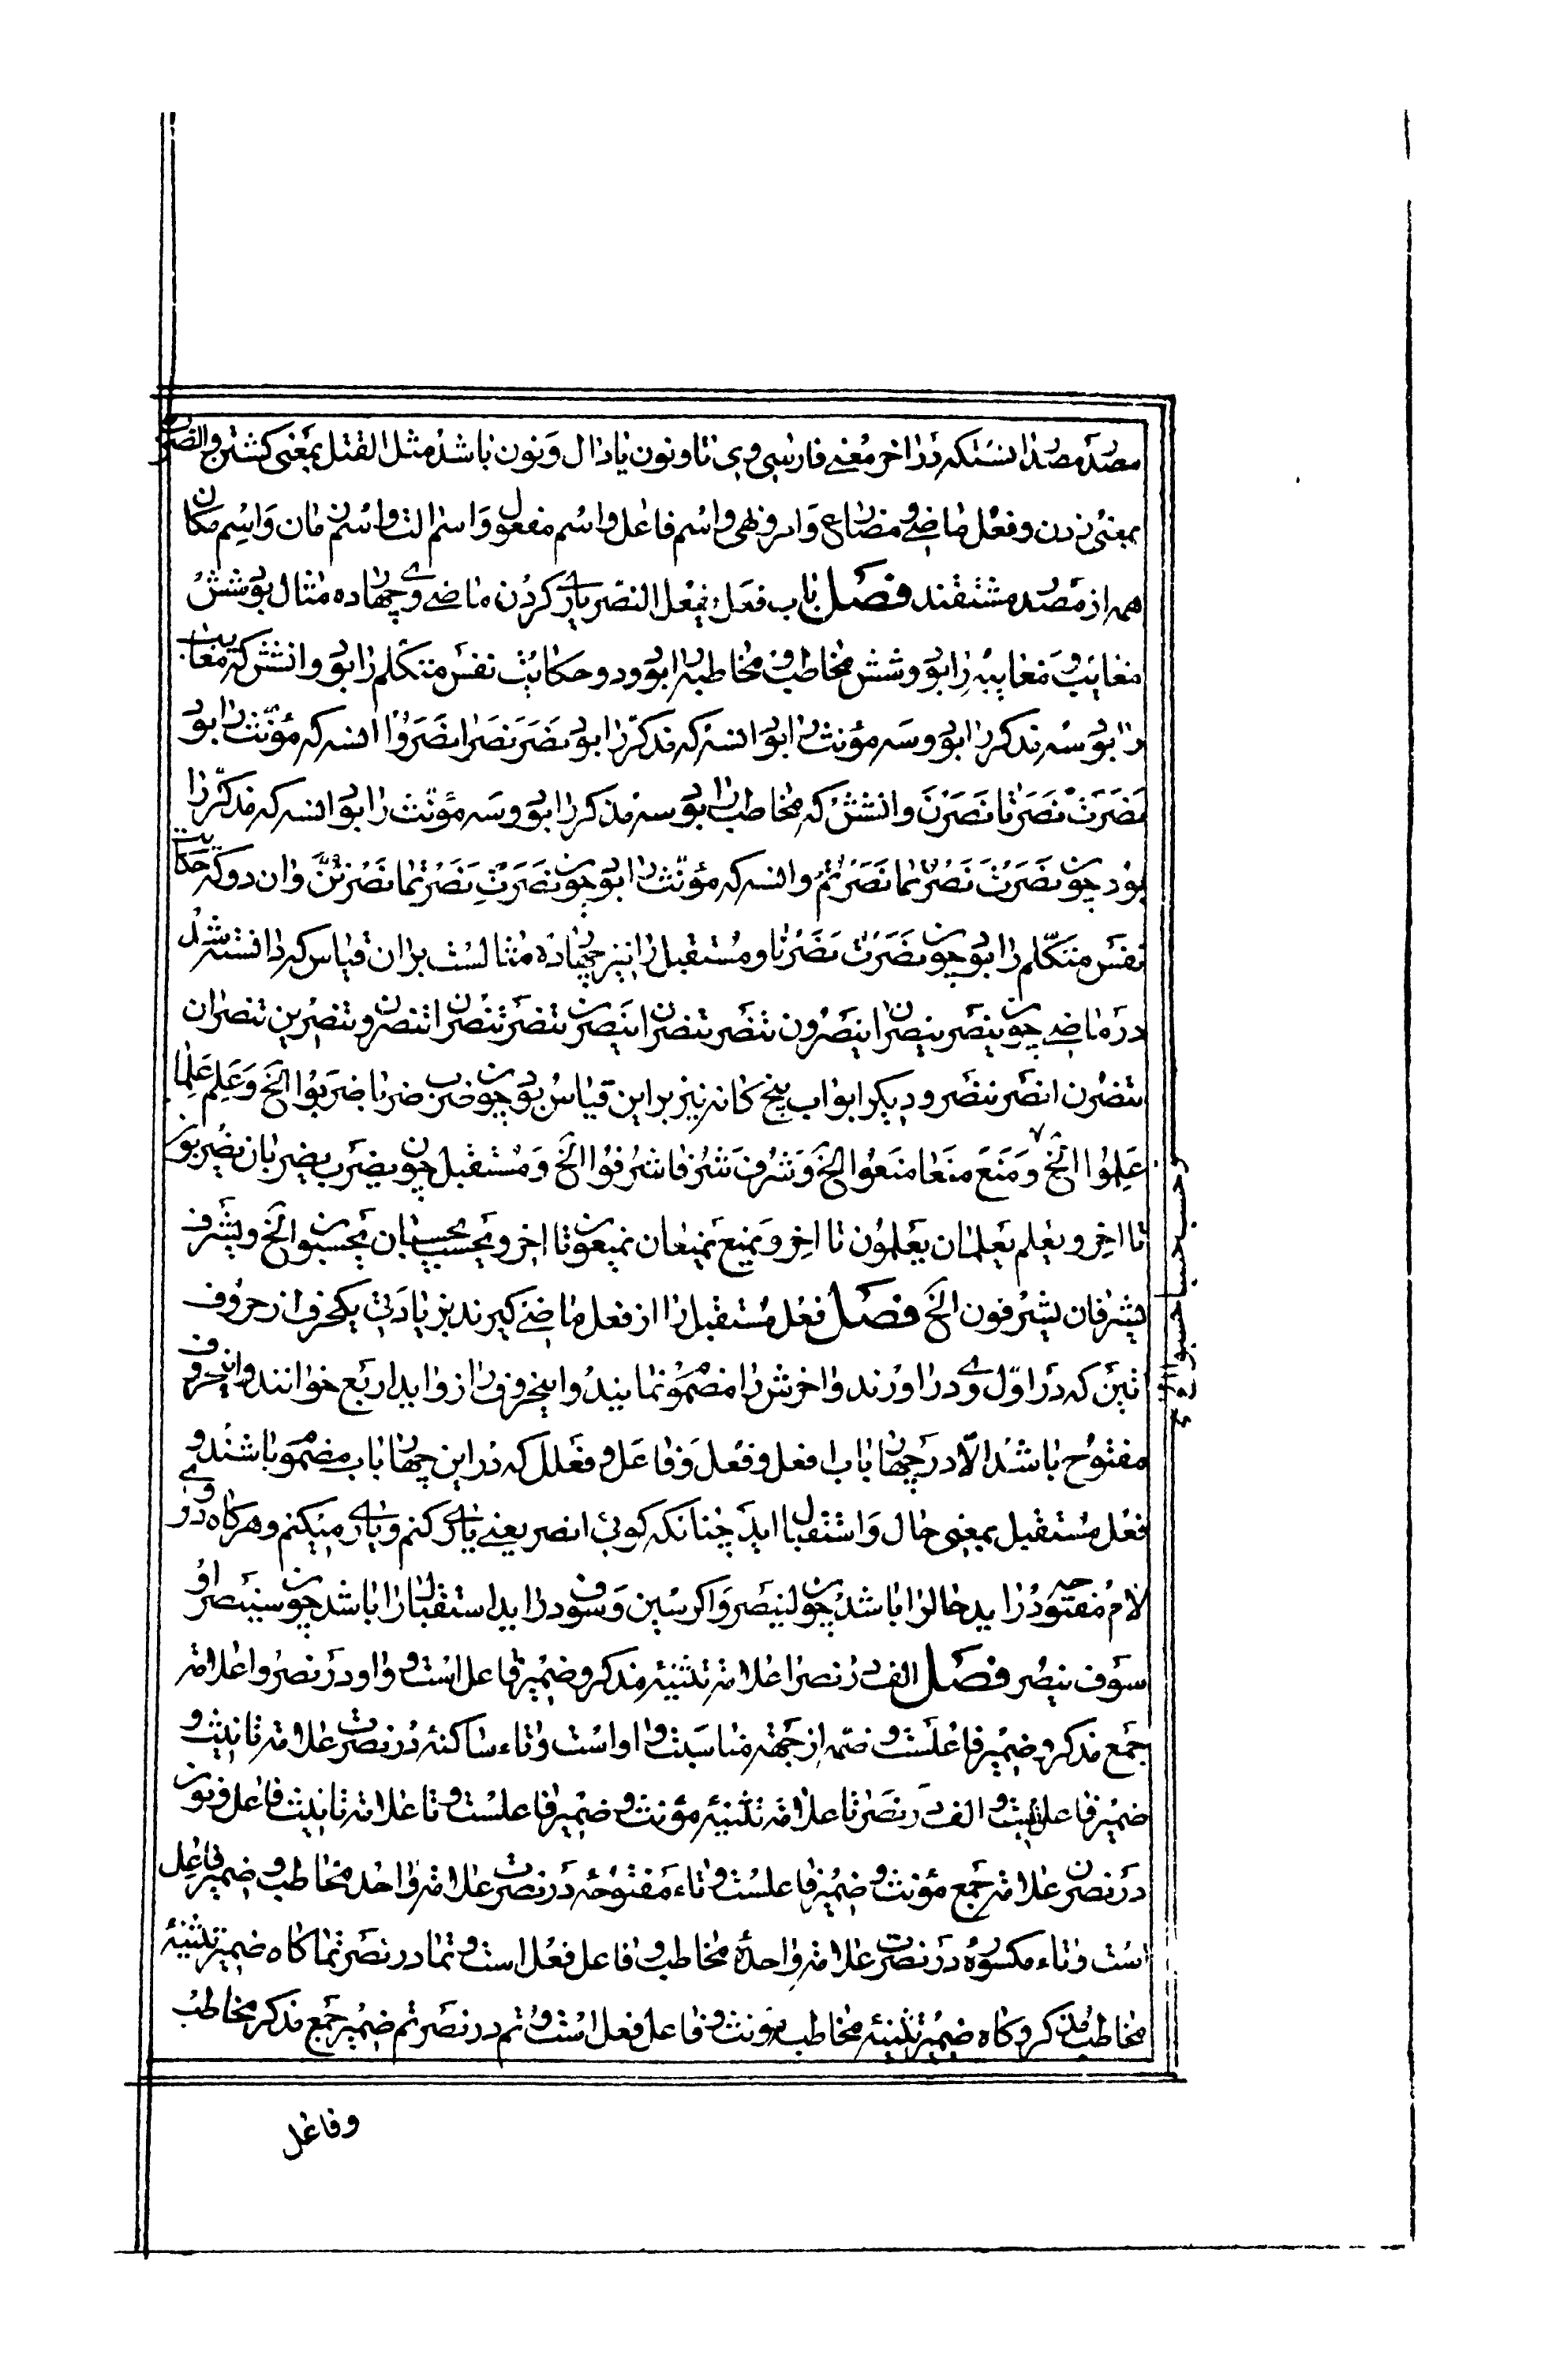 مصدر مصدر انستکه در اخر معنی فارسی وی تا و نون یا دال و نون باشد مثل القتل بمعنی کشتن و الضرب
بمعنی زدن و فعل ماضی و مضارع و امر و نهی و اسم فاعل و اسم مفعول و اسم الت و اسم زمان و اسم مکان
همه از مصدر مشتقند فصل باب فعل یفعل النصر یاری کردن ماضی وی چهارده مثال بود شش
مغایب و مغایبه را بود و شش مخاطب و مخاطبه را بود و دو حکایت نفس متکلم را بود و انشش که مغایب
را بود سه مذکر را بود و سه مؤنث را بود انسه که مذکر را بود نصر نصرا نصروا انسه که مؤنث را بود
نصرت نصرتا نصرن و انشش که مخاطب را بود سه مذکر را بود و سه مؤنث را بود انسه که مذکر را
بود چون نصرت نصرتما نصرتم و انسه که مؤنث را بود چون نصرت نصرتما نصرتن و ان دو که حکایت
نفس متکلم را بود چون نصرت نصرنا و مستقبل را نیز چهارده مثالست بران قیاس که دانسته شد
در ماضی چون ینصر ینصران ینصرون تنصر تنصران ینصرن تنصر تنصران تنصرون و تنصرین تنصران
تنصرن انصر ننصر و دیگر ابواب پنج کانه نیز براین قیاس بود چون ضرب ضربا ضربوا الخ و علم علما
علموا الخ و منع منعا منعوا الخ و شرف شرفا شرفوا الخ و مستقبل چون یضرب یضربان یضربون
و حسب حسبا حسبوا الخ
تا اخر و یعلم یعلمان یعلمون تا اخر و یمنع یمنعان یمنعون تا اخر و یحسب یحسبان یحسبون الخ و یشرف
یشرفان یشرفون الخ فصل فعل مستقبل را از فعل ماضی کیرند بزیادتی یکحرف از حروف
اتین که در اول وی در اورند و اخرش را مضموم نمایند و اینحروف را زواید اربع خوانند و اینحروف
مفتوح باشد الا در چهار باب افعل و فعل و فاعل و فعلل که در این چهار باب مضموم باشند و
فعل مستقبل بمعنی حال و استقبال اید چنانکه کوئی انصر یعنی یاری کنم و یاری میکنم و هرکاه در وی
لام مفتوحه در اید حال را باشد چون لینصر و اکر سین و سوف در اید استقبال را باشد چون سینصر او
سوف ینصر فصل الف در نصرا علامة تثنیه مذکر و ضمیر فاعل است و واو در نصروا علامة
جمع مذکر و ضمیر فاعلست و ضمه از جهة مناسبت واو است و تاء ساکنه در نصرت علامة تانیث و
ضمیر فاعل نیست و الف در نصرتا علامة تثنیه مؤنث و ضمیر فاعلست و تا علامة تانیث فاعل و نون
در نصرن علامة جمع مؤنث و ضمیر فاعلست و تاء مفتوحه در نصرت علامة واحد مخاطب و ضمیر فاعل
است و تاء مکسوره در نصرت علامة واحدهٔ مخاطب و فاعل فعل است و تما در نصرتما کاه ضمیر تثنیهٔ
مخاطب مذکر و کاه ضمیر تثنیه مخاطب مؤنث و فاعل فعل است و تم در نصرتم ضمیر جمع مذکر مخاطب
و فاعل